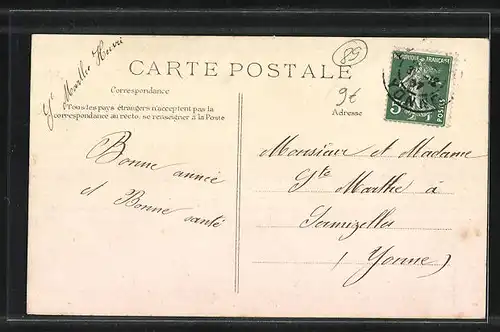 89
Gte Marthe Henri
CARTE POSTALE
REPUBLIQUE FRANÇAISE
5
POSTES
Correspondance
Tous les pays étrangers n'acceptent pas la
correspondance au recto, se renseigner à la Poste
9t
Adresse
Bonne année
et Bonne santé
Monsieur et Madame
Gte Marthe à
(Yonne)